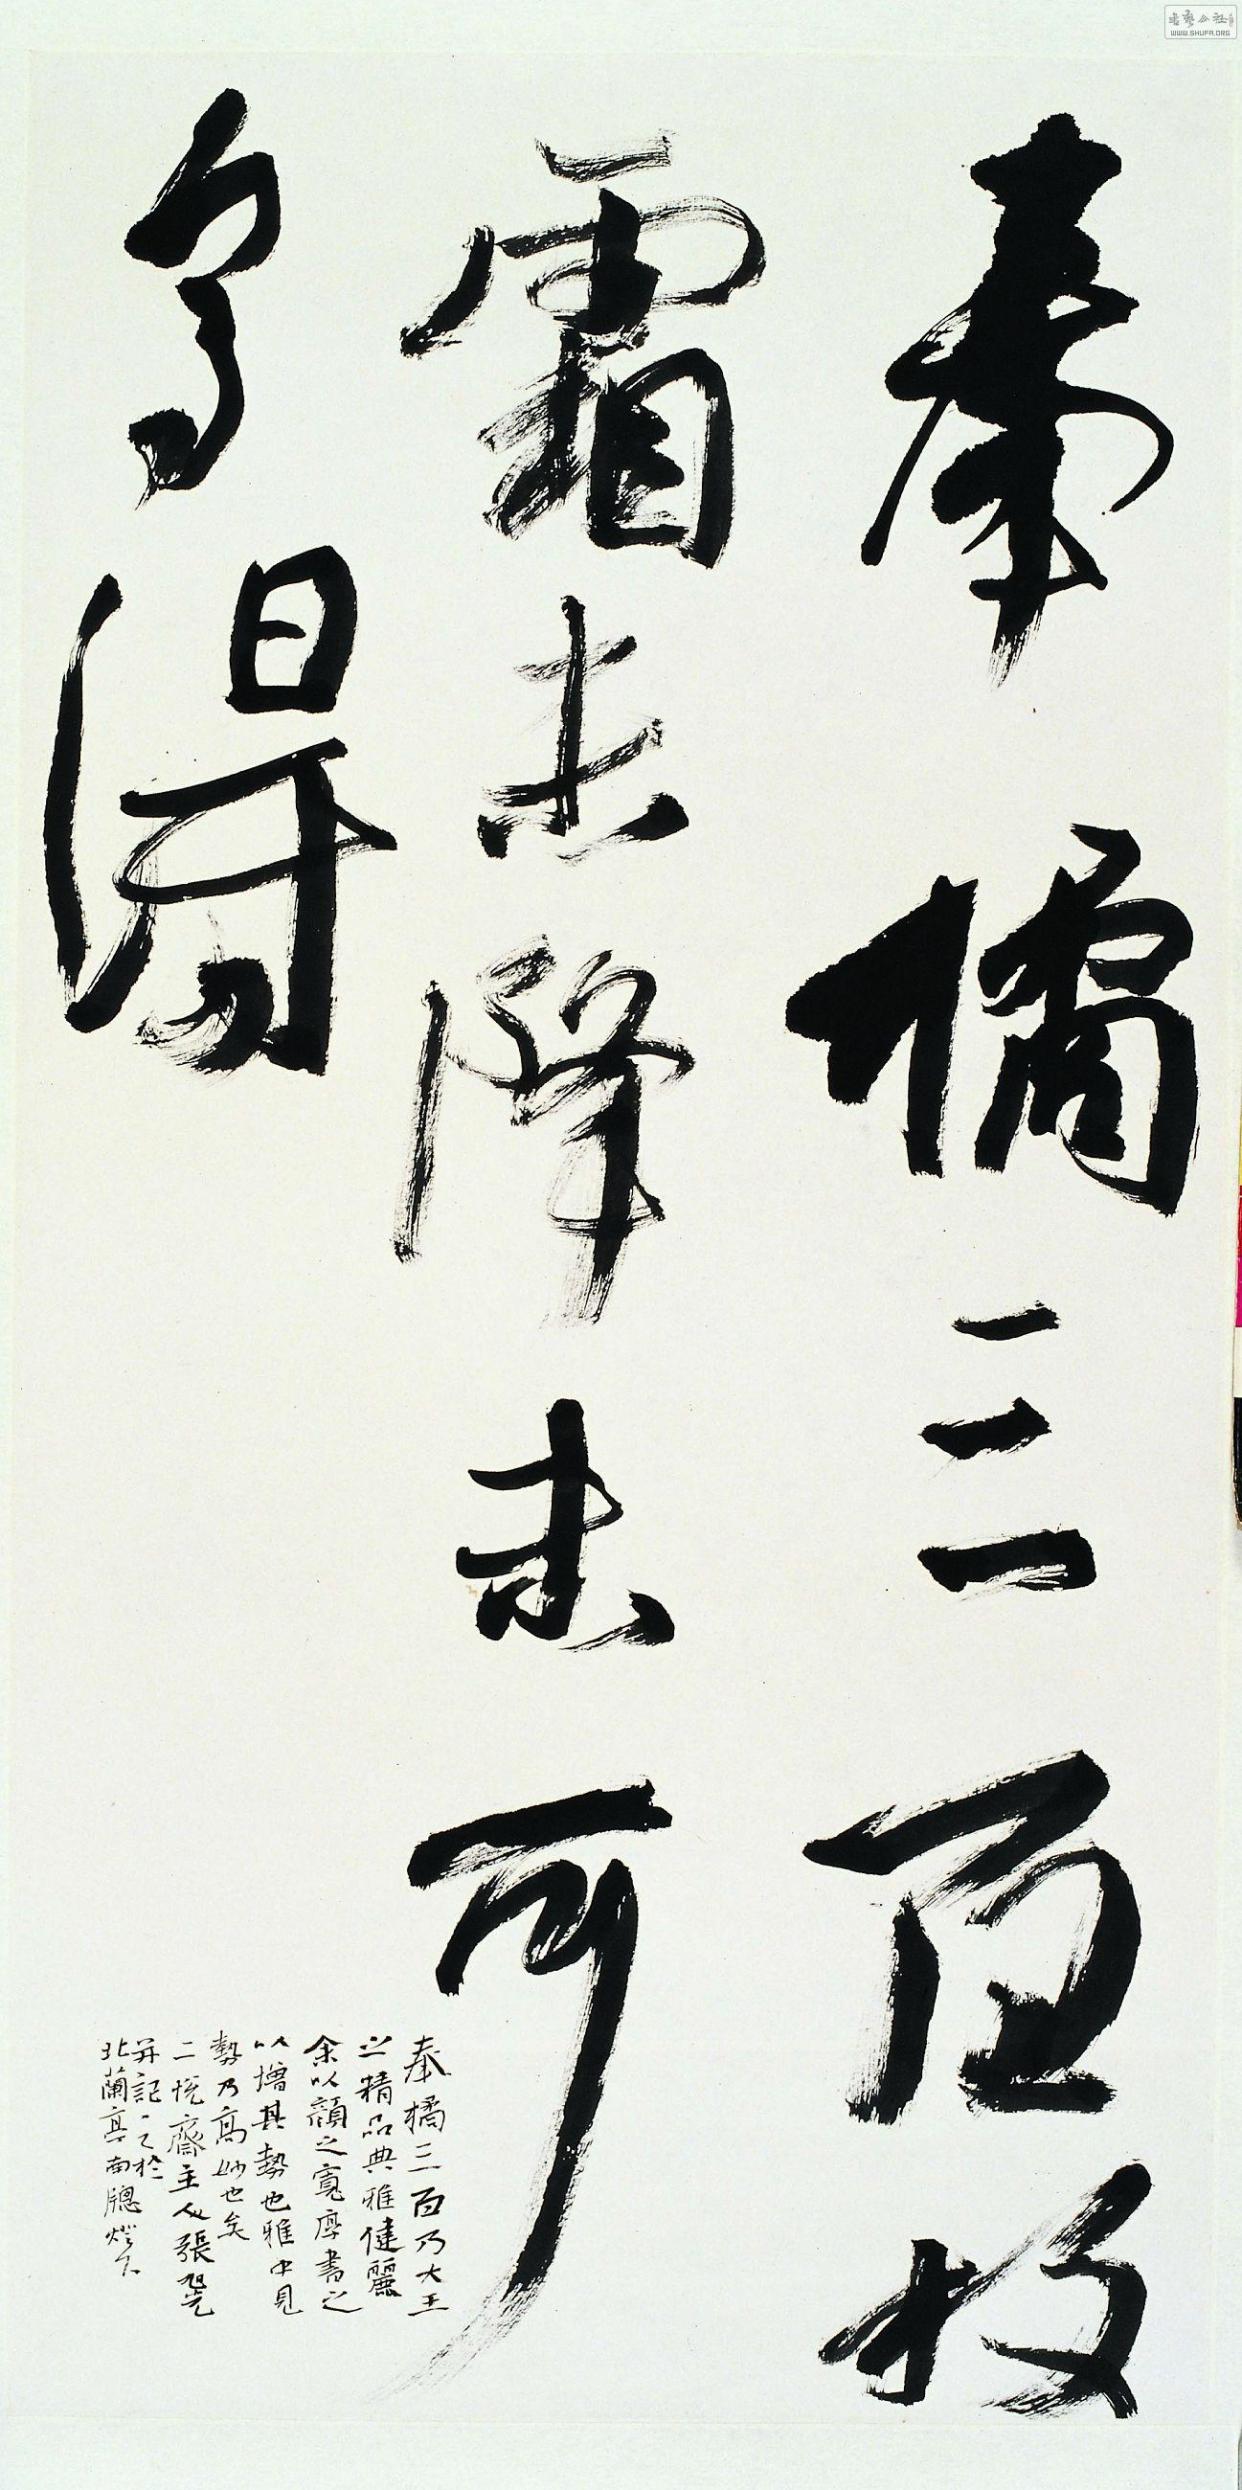 奉橘三百枚
霜未降未可
多得
奉橘三百乃大王
之精品典雅健麗
余以顔之寬厚書之
以增其勢也雅中見
勢乃高妙也矣
二悅齋主人張旭光
并記之於
北蘭亭南牕燈下
书艺公社
WWW.SHUFA.ORG